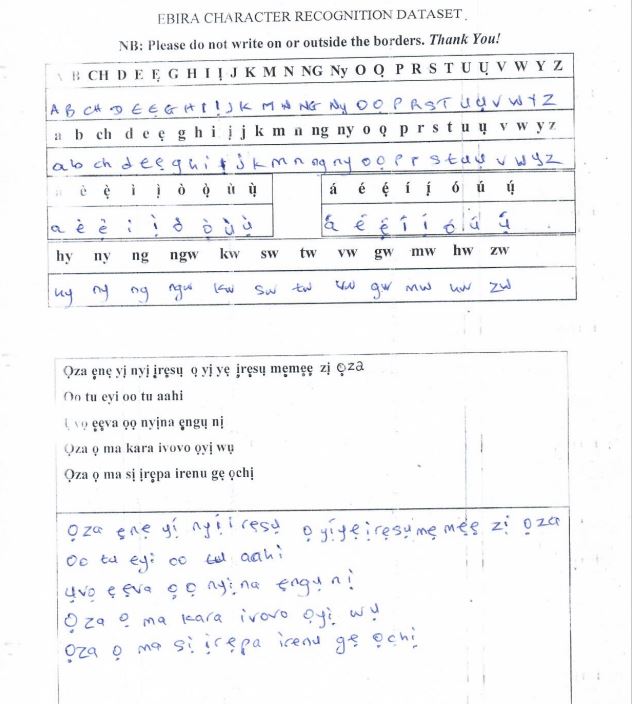 EBIRA CHARACTER RECOGNITION DATASET.
NB: Please do not write on or outside the borders. Thank You!
A B CH D E Ẹ G H I Ị J K M N NG Ny O Ọ P R S T U Ụ V W Y Z
A B CH D E Ẹ G H I Ị J K M N NG Ny O Ọ P R S T U Ụ V W Y Z
a b ch d e ẹ g h i ị j k m n ng ny o ọ p r s t u ụ v w y z
a b ch d e ẹ g h i ị j k m n ng ny o ọ p r s t u ụ v w y z
a è ẹ̀ ì ị̀ ò ọ̀ ù ụ̀ á é ẹ́ í ị́ ó ú ụ́
a è ẹ̀ i ị̀ ò ọ̀ ù ụ̀ á é ẹ́ í í ó ú ụ́
hy ny ng ngw kw sw tw vw gw mw hw zw
hy ny ng ngw kw sw tw vw gw mw hw zw
Ọza ẹnẹ yị nyị ịrẹsụ ọ yị yẹ ịrẹsụ mẹmẹẹ zị ọza
Oo tu eyi oo tu aahi
ẹẹva ọọ nyịna ẹngụ nị
Ọza ọ ma kara ivovo ọyị wụ
Ọza ọ ma sị ịrẹpa irenu gẹ ọchị
Ọza ẹnẹ yí nyíị irẹsụ ọ yíyẹịrẹsụmẹ mẹẹ zị ọza
Oo tu eyi oo tu aahi
ụvọ ẹẹva ọọ nyịna ẹngụ nị
Ọza ọ ma kara ivovo ọyị wụ
Ọza ọ ma sị ịrẹpa irenu gẹ ọchị